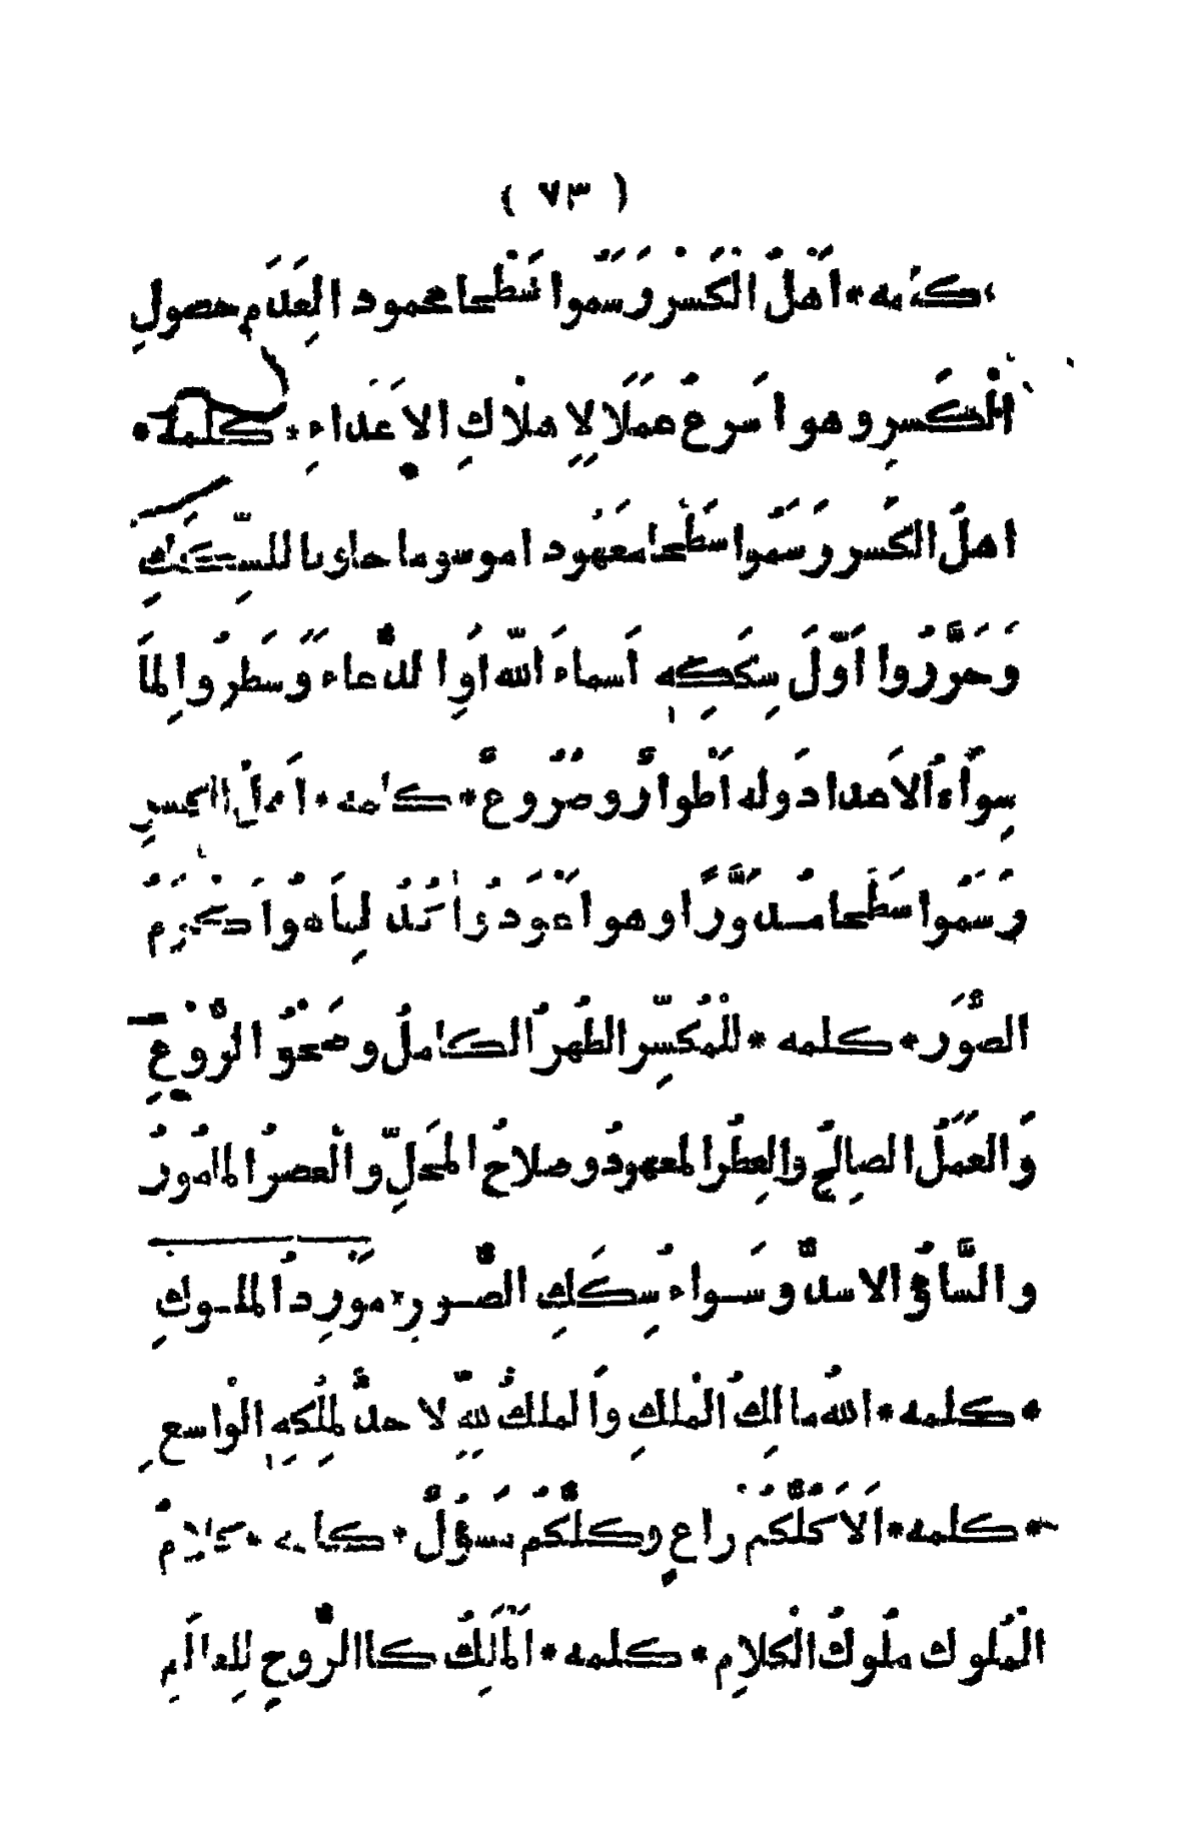 ( ٧٣ )
كلمه * اَهْلُ الْكَسْرِ وَسَمُوا سَطْحًا محمود العِدَم حصولِ
الْكَسرِ وهو اَسرعُ عَمَلًا لِاِهلاكِ الاَعداءِ * كلمه *
اهلُ الكَسر رَسَمُوا سَطْحا معهُودا موسوما حاويا للسِّكَكِ
وَحَرَّرُوا اَوّلَ سِكَكِهٖ اَسماءَ اللّه اَوِ الدُّعاءَ وَسَطرُوا لِلَمَا
سِواءُ الاَعدادَ وله اَطْوارٌ وصُرُوعٌ * كلمه * اَهلُ الكسرِ
رَسَمُوا سَطَحا مُدَوَّرًا وهو اَعْوَدُ وَاٰكَدُ لِمَا هُوَا دِكْرَمُ
الصُّوَر * كلمه * للْمُكسِّر الطُهرُ الكاملُ وصَحْوُ الرُّوْعِ
وَالعَمَلُ الصالحُ والعِطرُ المعهودُ وصلاحُ المَحَلِّ والعصرُ المامُورُ
والسَّاوُ الاسدُّ وسَواءُ سِكَكِ الصُّورِ * مَوْرِدُ الملوكِ
* كلمه * اللهُ مالِكُ الْمُلكِ وَالملكُ لِلّهِ لا حدَّ لِمُلكِهِ الْواسعِ
* كلمه * اَلَا كُلُّكُمْ راعٍ وكلُّكُم مَسؤُلٌ * كلمه * كلامُ
الْمُلوك ملُوكُ الْكلامِ * كلمه * اَلْمَلِكُ كالرُّوحِ لِلعالَمِ